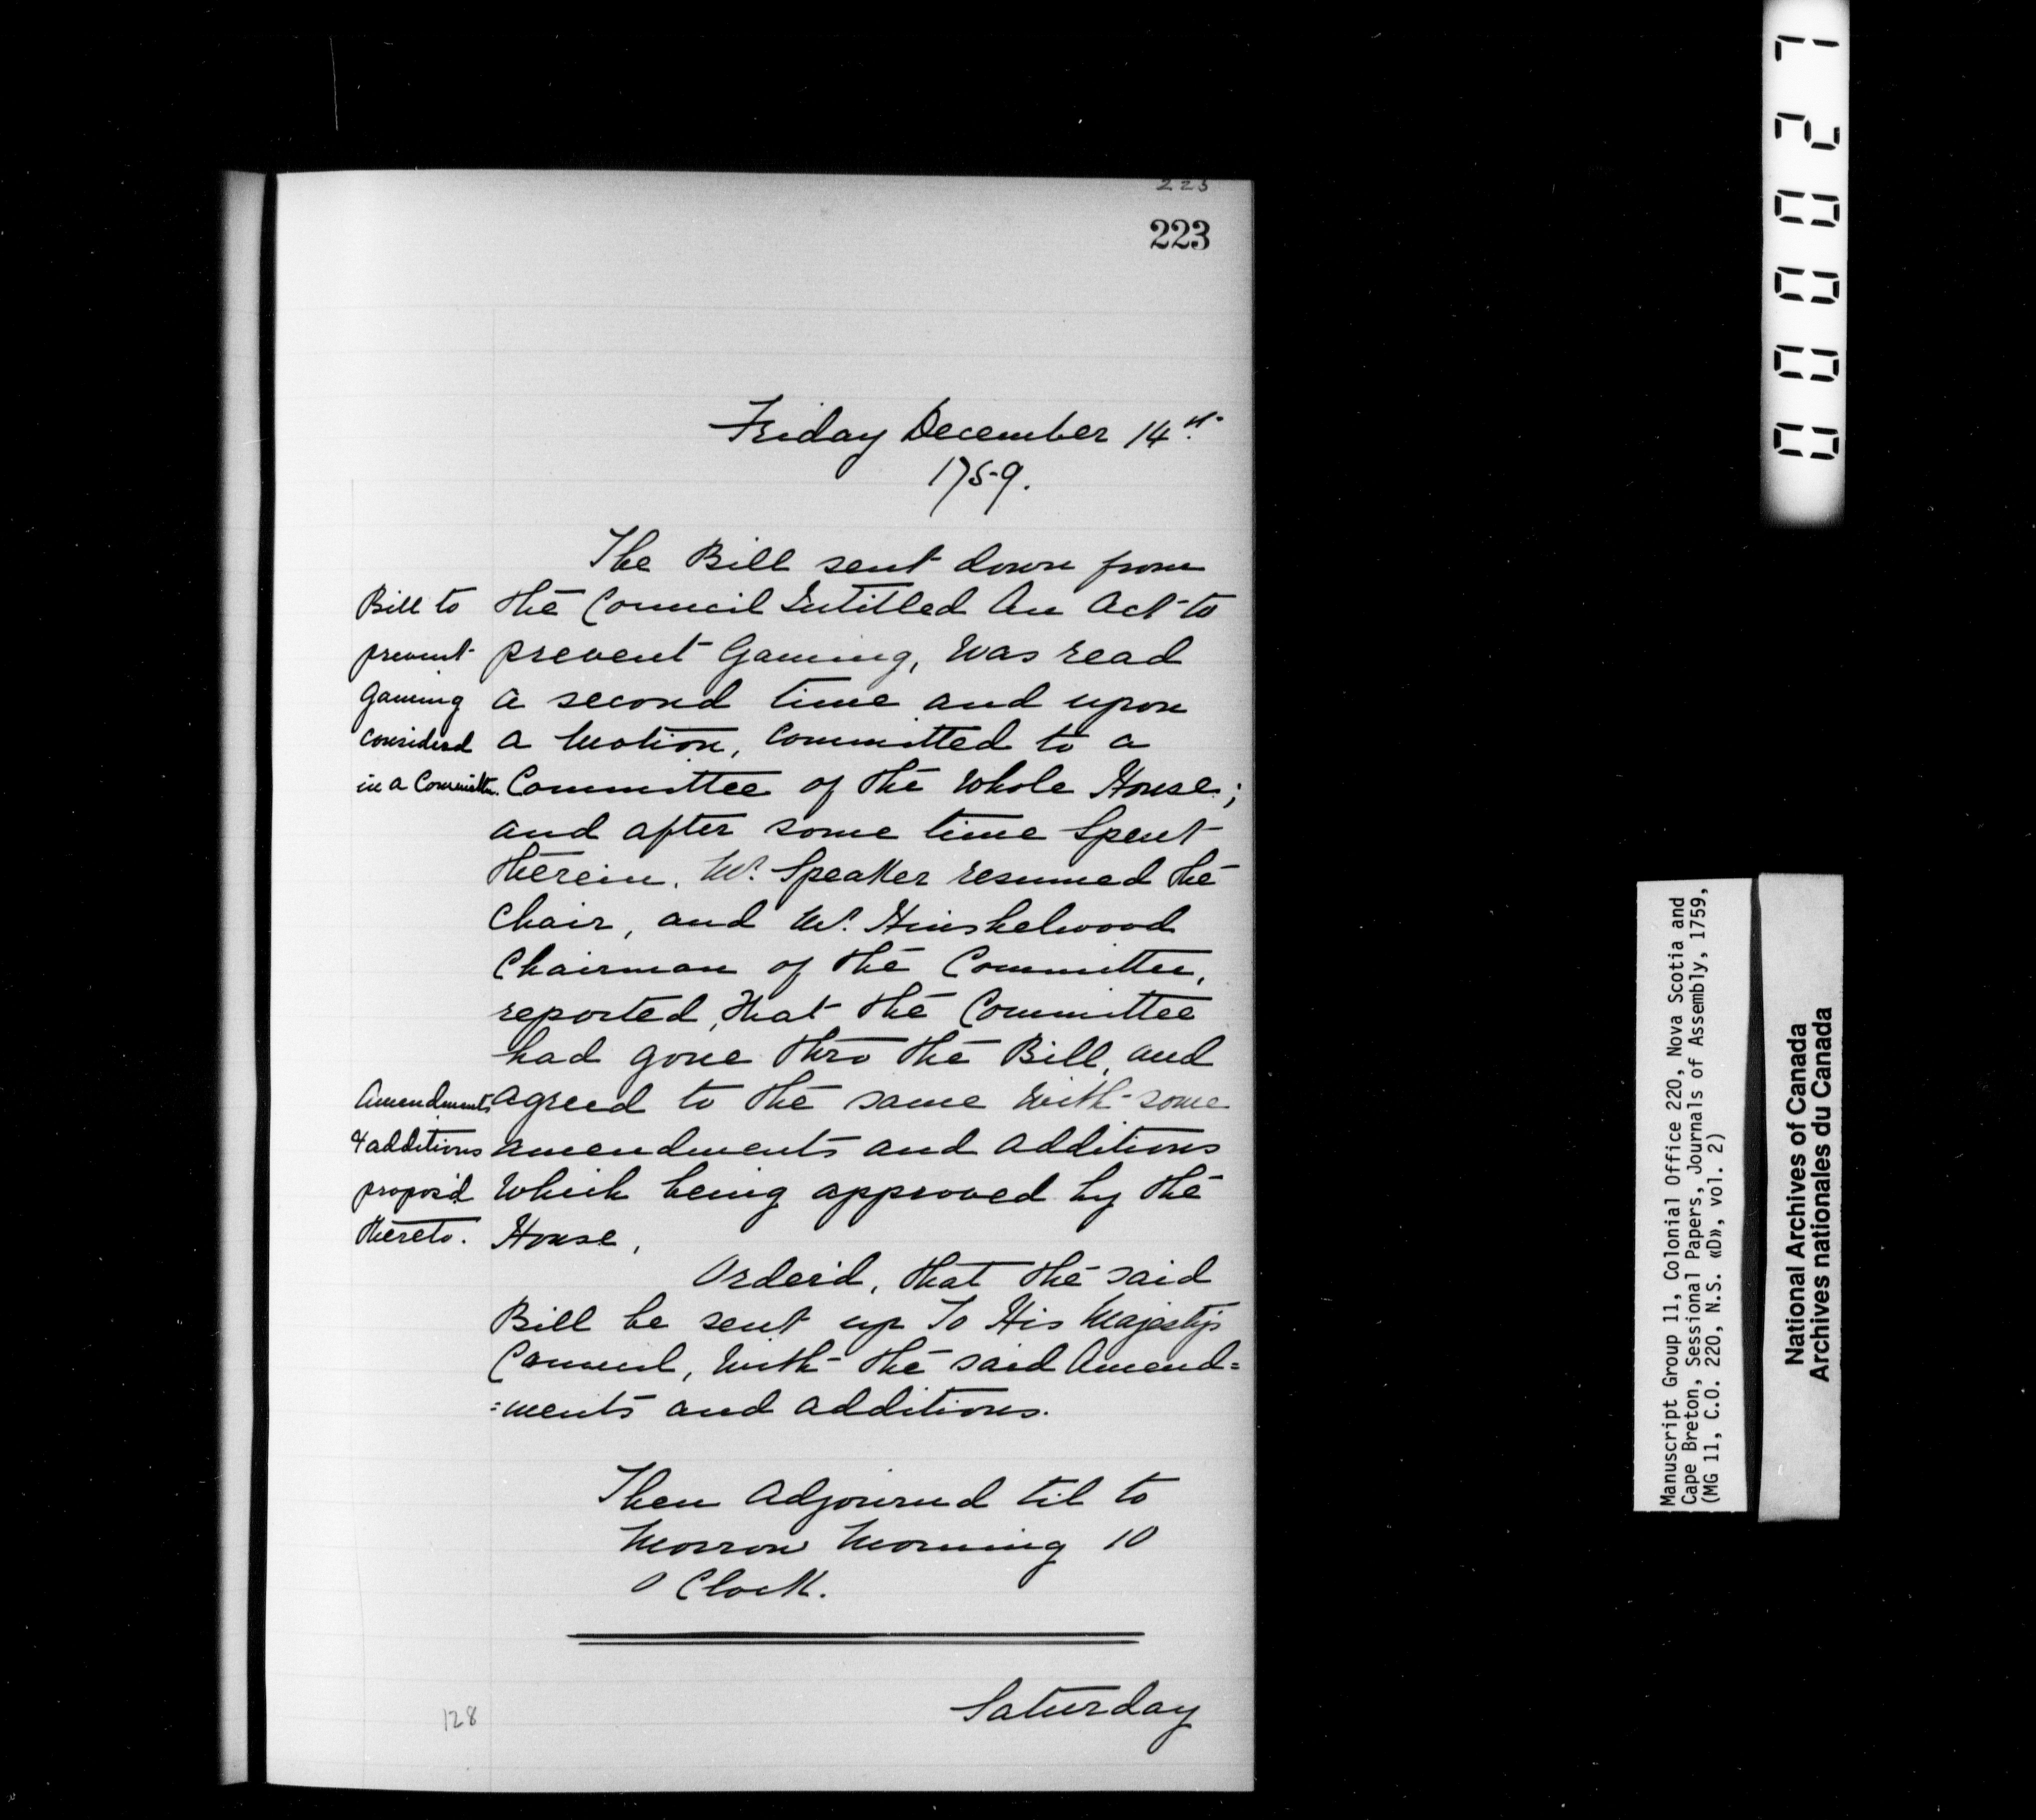 223
223
Friday December 14th
1759.
The Bill sent down from
Bill to the Council Entitled An Act to
prevent prevent Gaming, was read
Gaming a second time and upon
considerd a Motion, Committed to a
in a Committee. Committee of the Whole House;
and after some time Spent
therein. Mr. Speaker resumed the
Chair, and Mr. Hinshelwood
Chairman of the Committee,
reported, that the Committee
had gone thro the Bill, and
Amendments agreed to the same with some
& additions amendments and additions
propos'd Which being approved by the
thereto. House,
Order'd, that the said
Bill be sent up To His Majesty's
Council, with the said Amend=
=ments and additions.
Then Adjourned til to
Morrow Morning 10
O Clock.
Saturday
128
000027
Manuscript Group 11, Colonial Office 220, Nova Scotia and
Cape Breton, Sessional Papers, Journals of Assembly, 1759,
(MG 11, C.O. 220, N.S. «D», vol. 2)
National Archives of Canada
Archives nationales du Canada